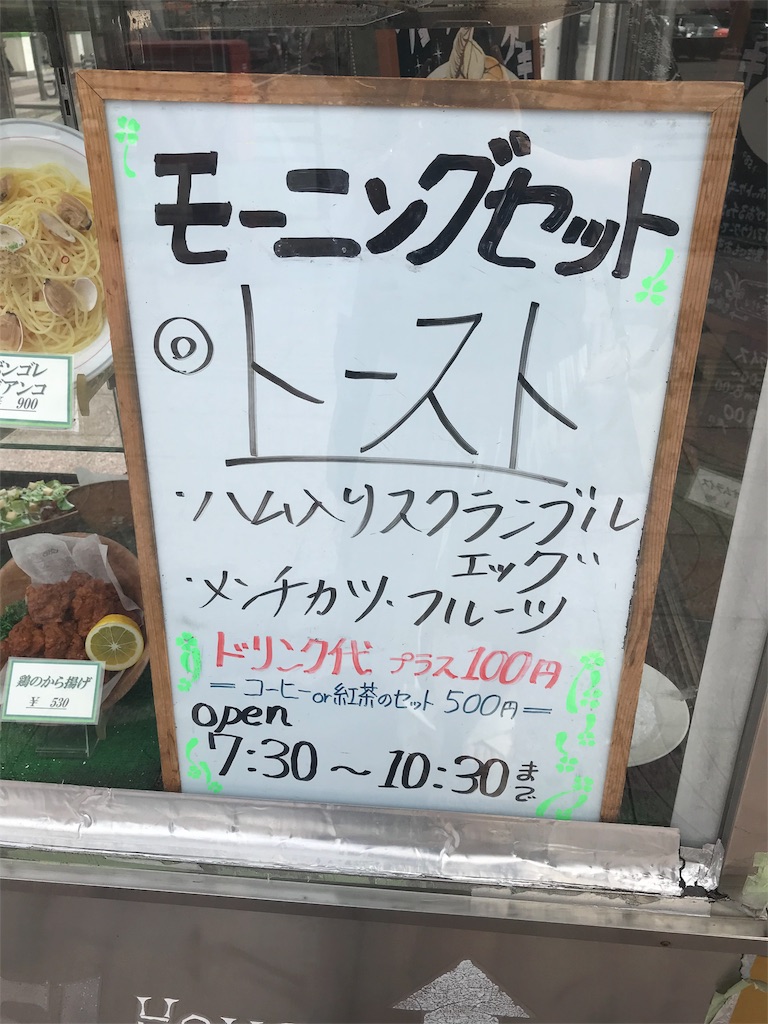 モーニングセット
◎ トースト
・ハム入りスクランブル
エッグ
・メンチカツ・フルーツ
ドリンク代 プラス100円
= コーヒー or 紅茶のセット 500円 =
open
7:30 〜 10:30 まで
ンゴレ
アンコ
900
鶏のから揚げ
¥ 530